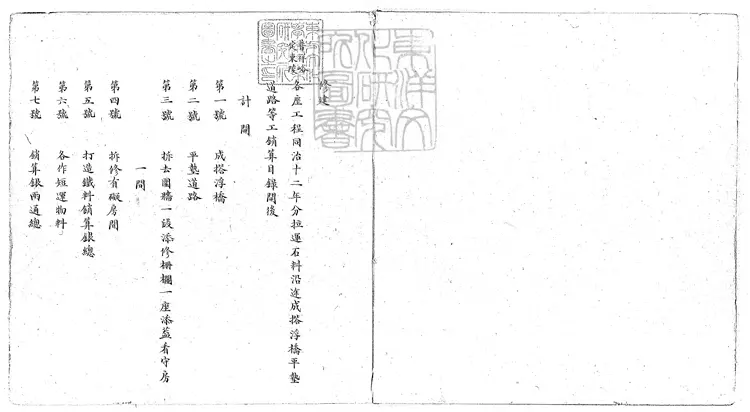 東洋文化研究所圖書
修建
普祥峪
定東陵
各座工程同治十二年分拉運石料沿途成搭浮橋平墊
道路等工銷算目錄開後
計開
第一號 成搭浮橋
第二號 平墊道路
第三號 拆去圍墻一段添修柵欄一座添蓋看守房
一間
第四號 拆修有礙房間
第五號 打造鐵料銷算銀總
第六號 各作短運物料
第七號 銷算銀兩通總